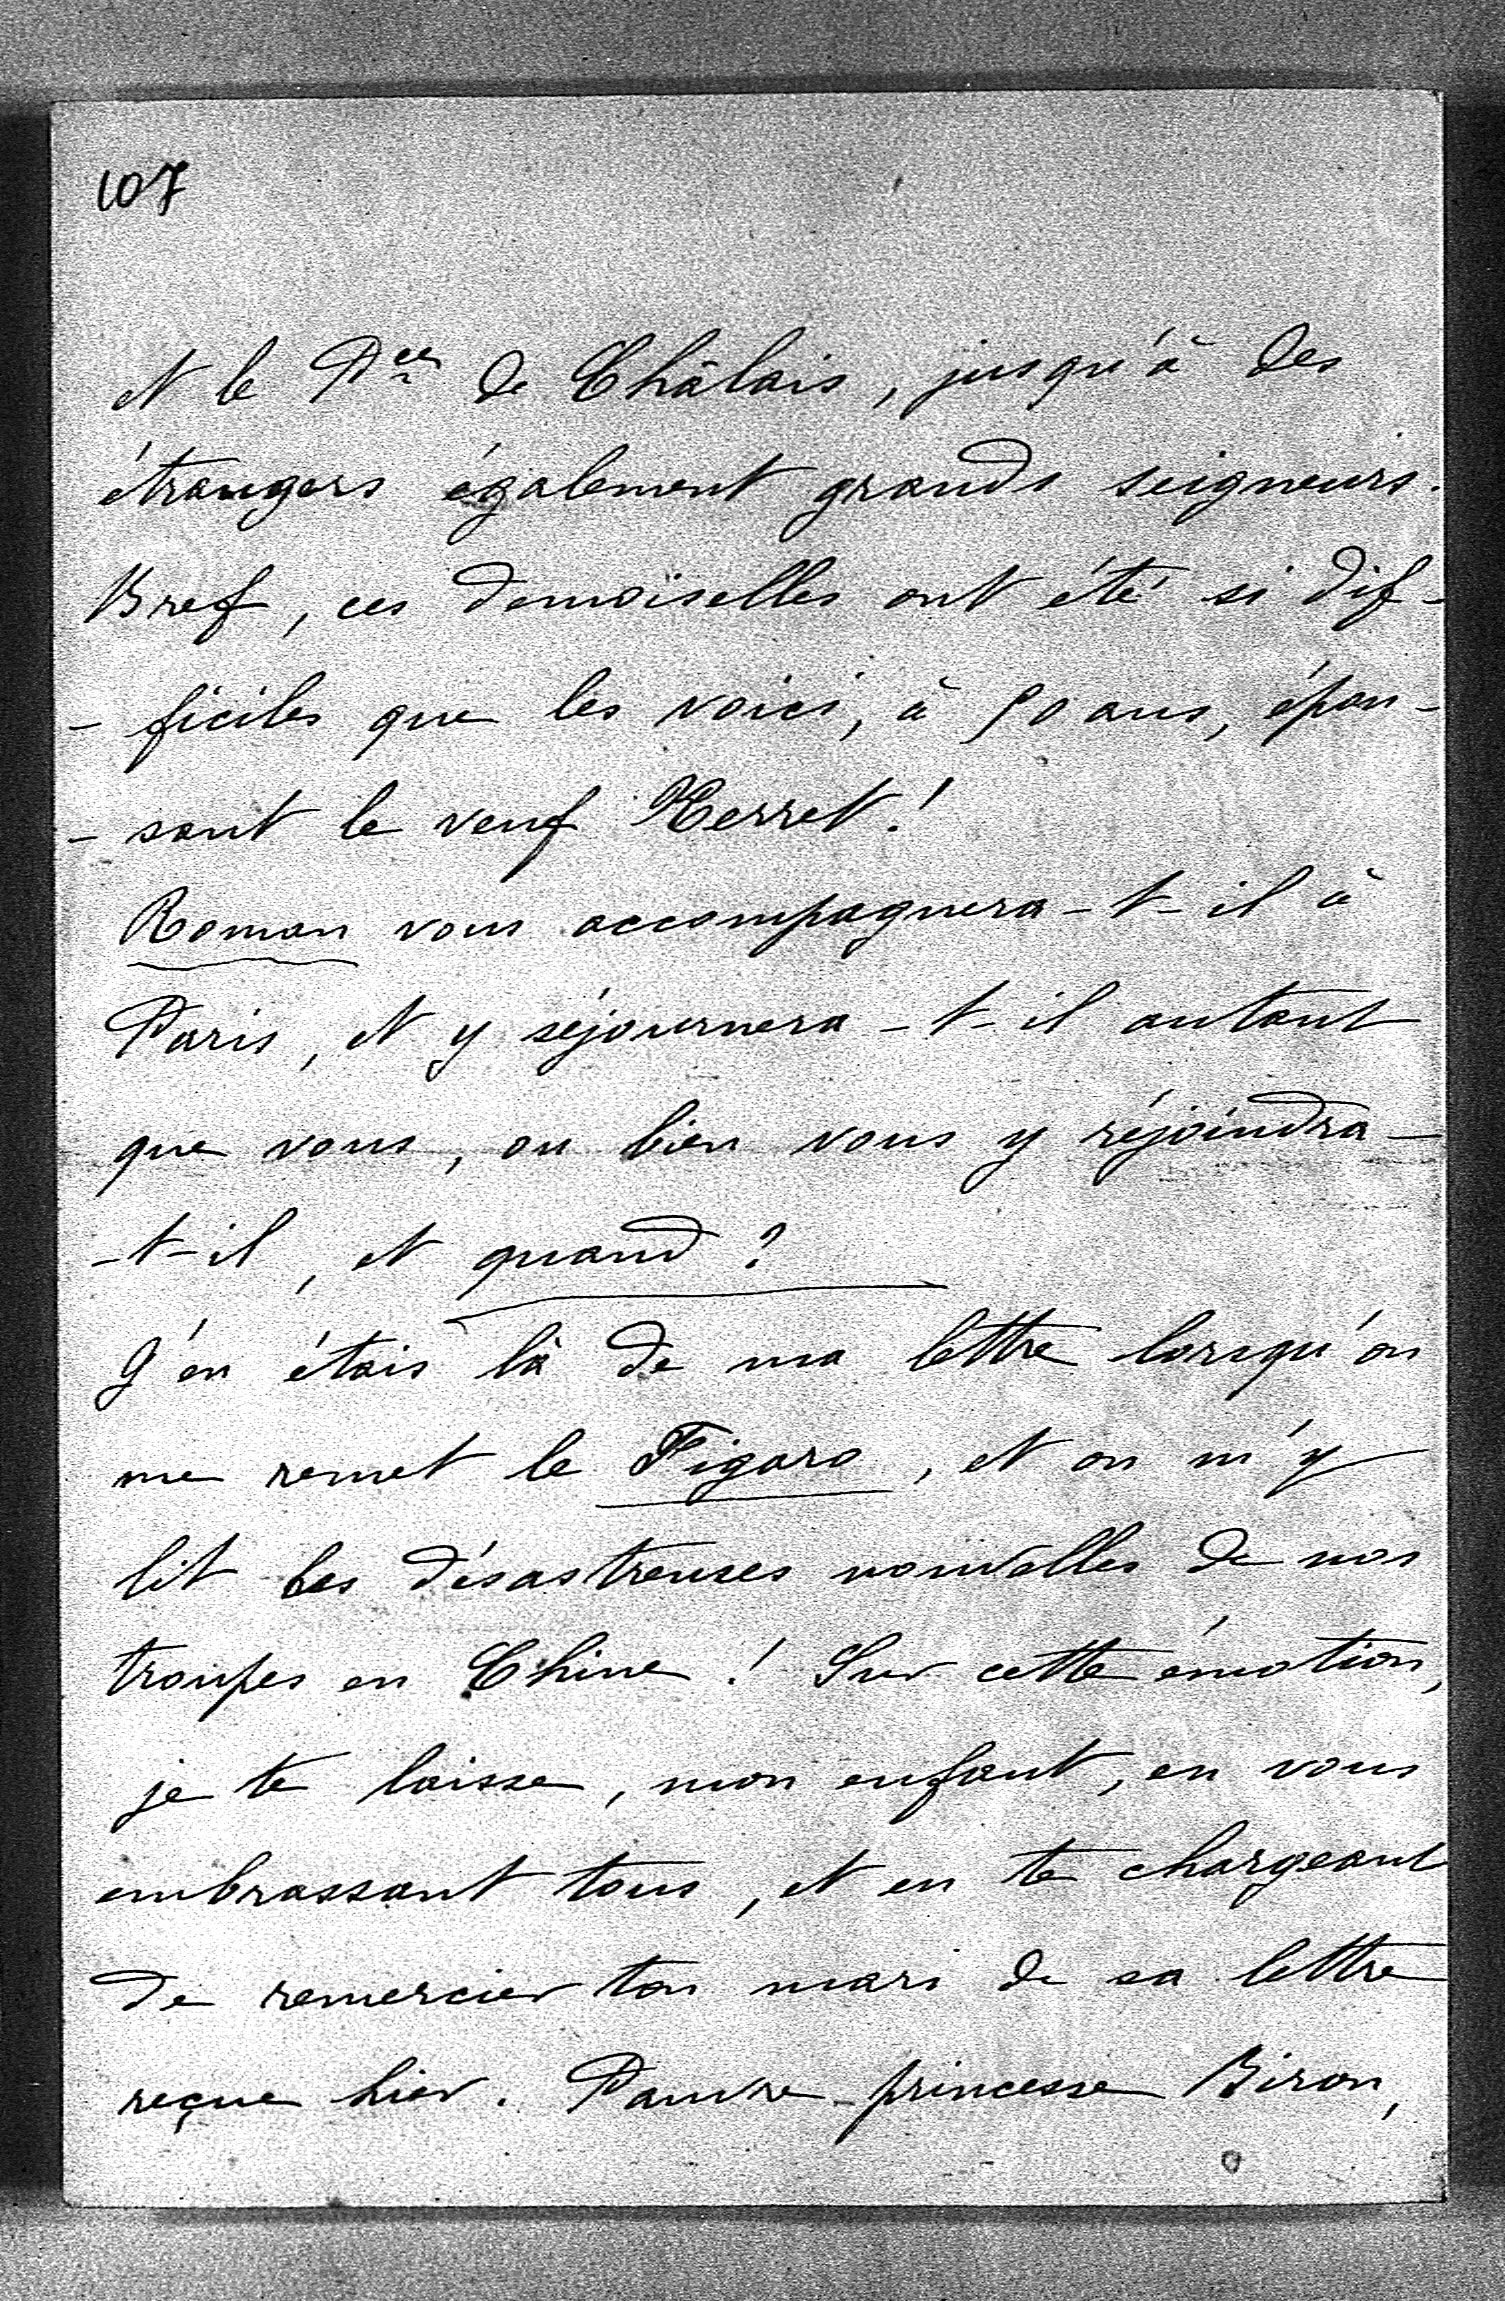 107
et le Pce de Châlais, jusqu'à des
étrangers également grands seigneurs.
Bref, ces demoiselles ont été si dif-
- ficiles que les voici, à 50 ans, épou-
- sant le veuf Herret!
Roman vous accompagnera-t-il à
Paris, et y séjournera-t-il autant
que vous, ou bien vous y réjoindra-
-t-il, et quand?
J'en étais là de ma lettre lorsqu'on
me remet le Figaro, et on m'y
lit les désastreuses nouvelles de nos
troupes en Chine! Sur cette émotion,
je te laisse, mon enfant, en vous
embrassant tous, et en te chargeant
de remercier ton mari de sa lettre
reçue hier. Pauvre princesse Biron,